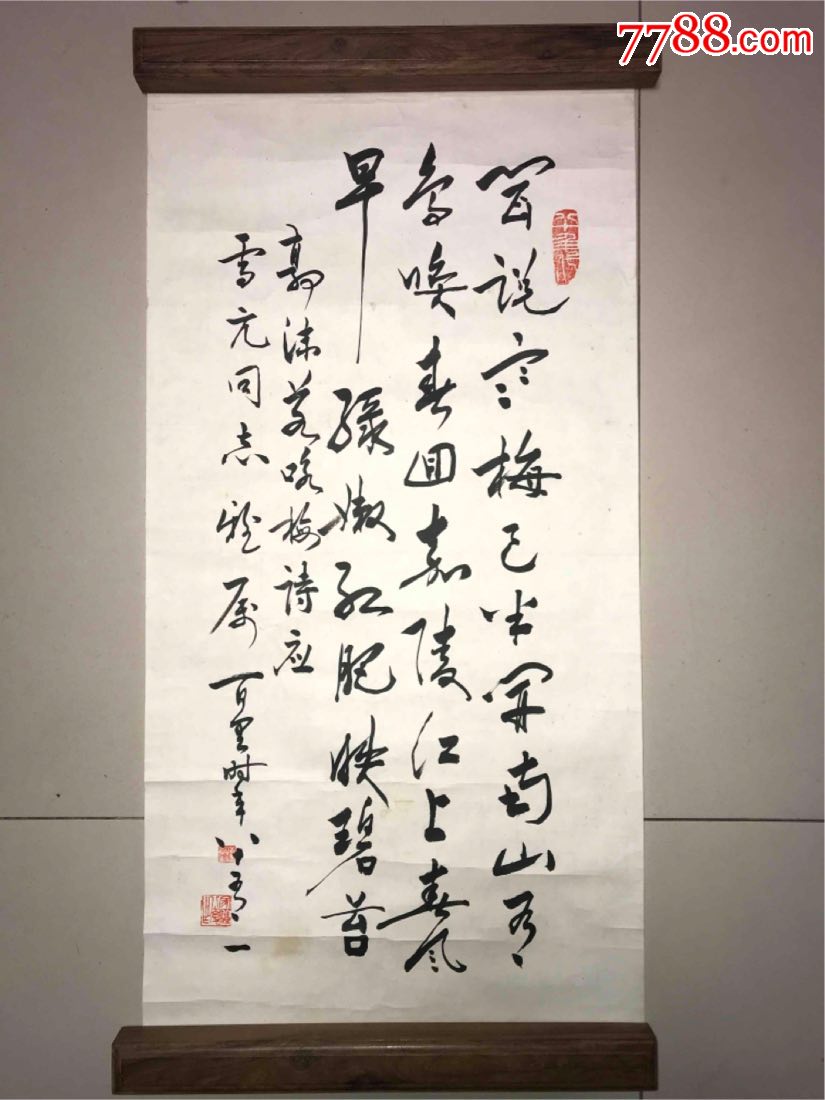 7788.com
闻说寒梅已半开蜀山有
鸟唤春回嘉陵江上春风
早绿嫩红肥映碧苔
郭沫若咏梅詩应
雪亢同志雅属 百里时年八十有一